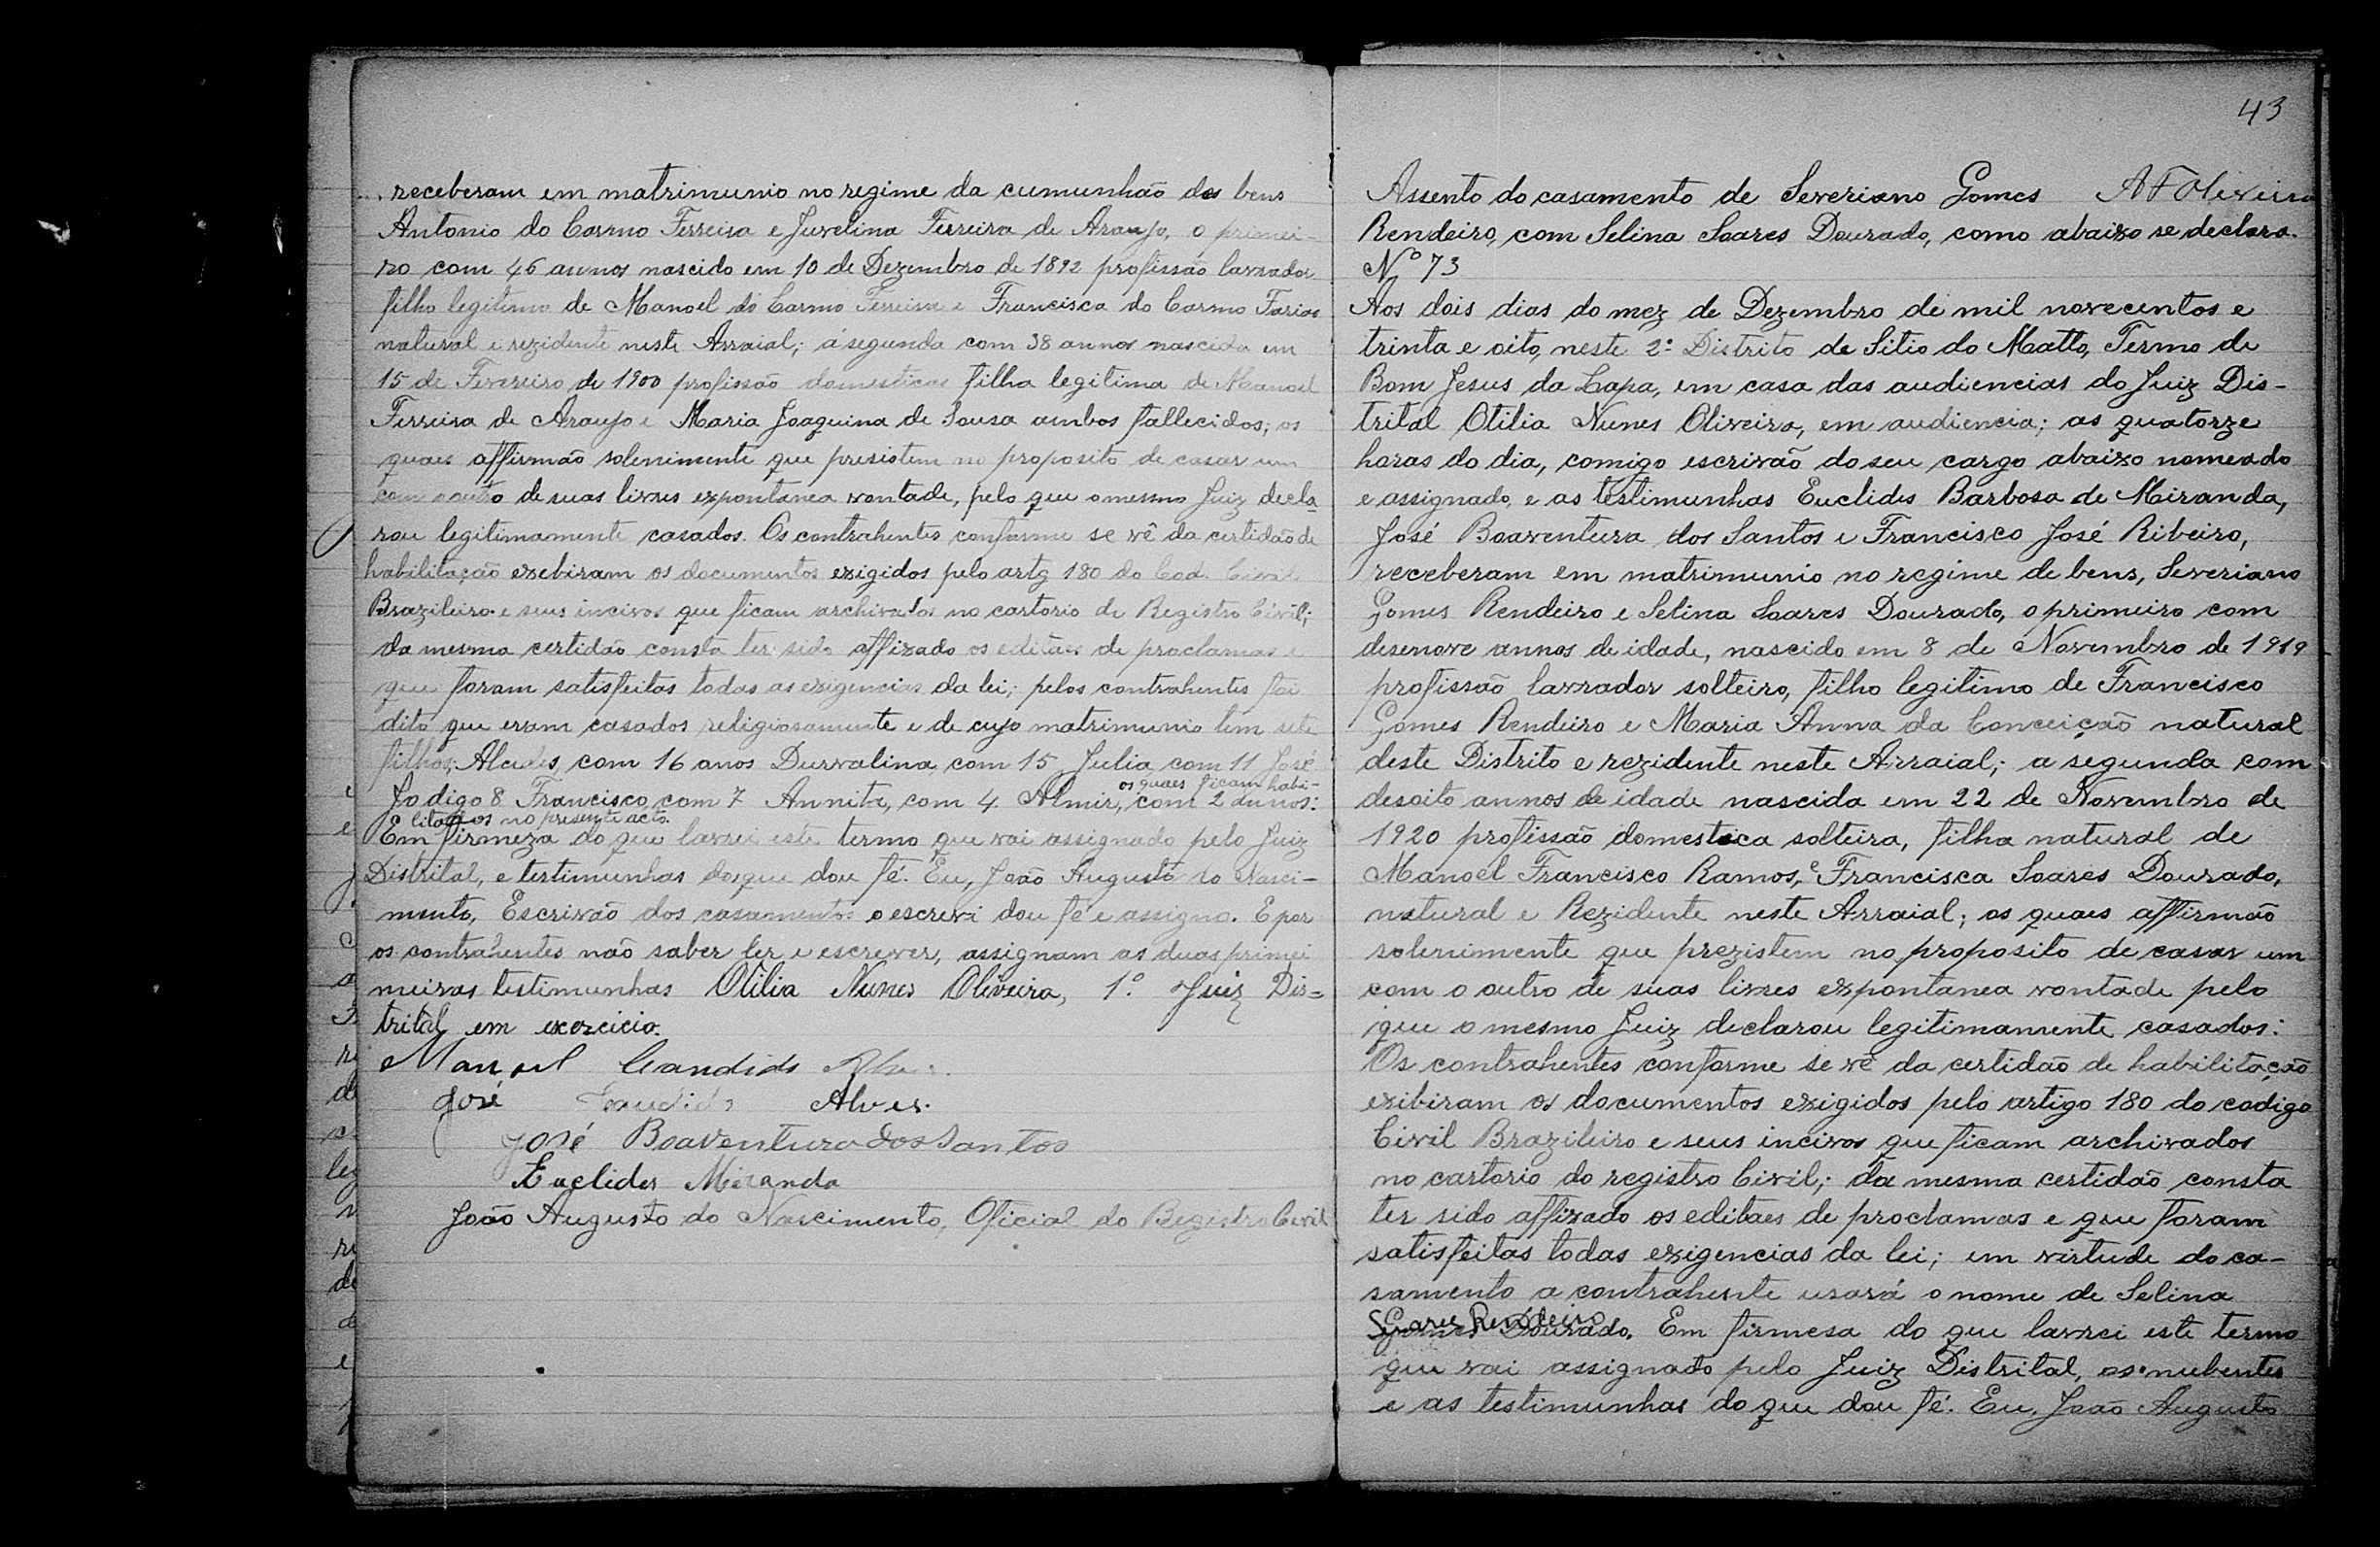 receberam em matrimunio no regime da cumunhão des bens
Antonio do Carmo Ferreira e Juvelina Ferreira de Araujo, o primei-
ro com 46 annos nascido em 10 de Dezembro de 1892 profissão lavrador
filho legitimo de Manoel do Carmo Ferreira e Francisca do Carmo Farias
natural e rezidente neste Arraial; á segunda com 38 annos nascida em
15 de Fevereiro de 1900 profissão domestica filha legitima de Manoel
Ferreira de Araujo e Maria Joaquina de Sousa ambos fallecidos; os
quaes affirmão solenimente que presistem no proposito de casar um
com o outro de suas livres expontanea vontade, pelo que o mesmo Juiz decla
rou legitimamente casados. Os contrahentes conforme se vê da certidão de
habilitação exebiram os documentos exigidos pelo artg 180 do Cod. Civil
Brazileiro e seus incivos que ficam archivados no cartorio de Registro Civil;
da mesma certidão consta ter sido affixado os editaes de proclamas e
que foram satisfeitas todas as exigencias da lei; pelos contrahentes foi
dito que eram casados religiosamente e de cujo matrimunio tem sete
filhos; Alcides, com 16 anos Durvalina, com 15, Julia com 11 José
os quaes ficam habi-
Jo digo 8 Francisco, com 7 Annita, com 4 Almir, com 2 annos:
litados no presente acto.
Em firmeza do que lavrei este termo que vai assignado pelo Juiz
Distrital, e testimunhas do que dou fé. Eu, João Augusto do Nasci-
mento, Escrivão dos casamentos o escrevi dou fé e assigno. E por
os contrahentes não saber ler e escrever, assignam as duas primei
meiras testimunhas Otilia Nunes Oliveira, 1º Juiz Dis=
trital em exercicio.
Manoel Candido
José Candido Alves.
José Boaventura dos Santos
Euclides Miranda
João Augusto do Nascimento, Oficial do Registro Civil
43
Assento do casamento de Severiano Gomes A F Oliveira
Rendeiro, com Selina Soares Dourado, como abaixo se declara.
Nº 73
Aos dois dias do mez de Dezembro de mil novecentos e
trinta e oito, neste 2º Distrito de Sitio do Matto, Termo de
Bom Jesus da Lapa, em casa das audiencias do Juiz Dis-
trital Otilia Nunes Oliveira, em audiencia; as quatorze
horas do dia, comigo escrivão do seu cargo abaixo nomeado
e assignado, e as testimunhas Euclides Barbosa de Miranda,
José Boaventura dos Santos e Francisco José Ribeiro,
receberam em matrimunio no regime de bens, Severiano
Gomes Rendeiro e Selina Soares Dourado, o primeiro com
desenove annos de idade, nascido em 8 de Novembro de 1919
profissão lavrador solteiro, filho legitimo de Francisco
Gomes Rendeiro e Maria Anna da Conceição natural
deste Distrito e rezidente neste Arraial; a segunda com
desoito annos de idade nascida em 22 de Novembro de
1920 profissão domestica solteira, filha natural de
Manoel Francisco Ramos, e Francisca Soares Dourado,
natural e Rezidente neste Arraial; os quaes affirmão
solenimente que prezistem no proposito de casar um
com o outro de suas livres expontanea vontade pelo
que o mesmo Juiz declarou legitimamente casados:
Os contrahentes conforme se vê da certidão de habilitação
exibiram os documentos exigidos pelo artigo 180 do codigo
Civil Brazileiro e seus incivos que ficam archivados
no cartorio do registro Civil; da mesma certidão consta
ter sido affixado os editaes de proclamas e que foram
satisfeitas todas exigencias da lei; em virtude do ca-
samento a contrahente usará o nome de Selina
Soares Rendeiro
Gomes Dourado. Em firmesa do que lavrei este termo
que vai assignado pelo Juiz Distrital, os nubentes
e as testimunhas do que dou fé. Eu, João Augusto